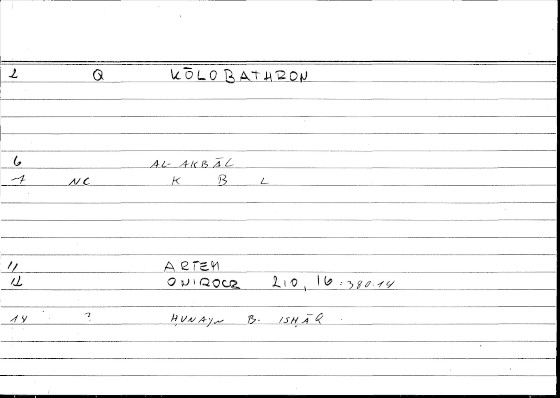 2 Q KŌLOBATHRON
6 AL-AKBĀL
7 NC K B L
11 ARTEM
12 ONIROCR 210, 16 : 380.14
18 ? ḤUNAYN B. ISḤĀQ